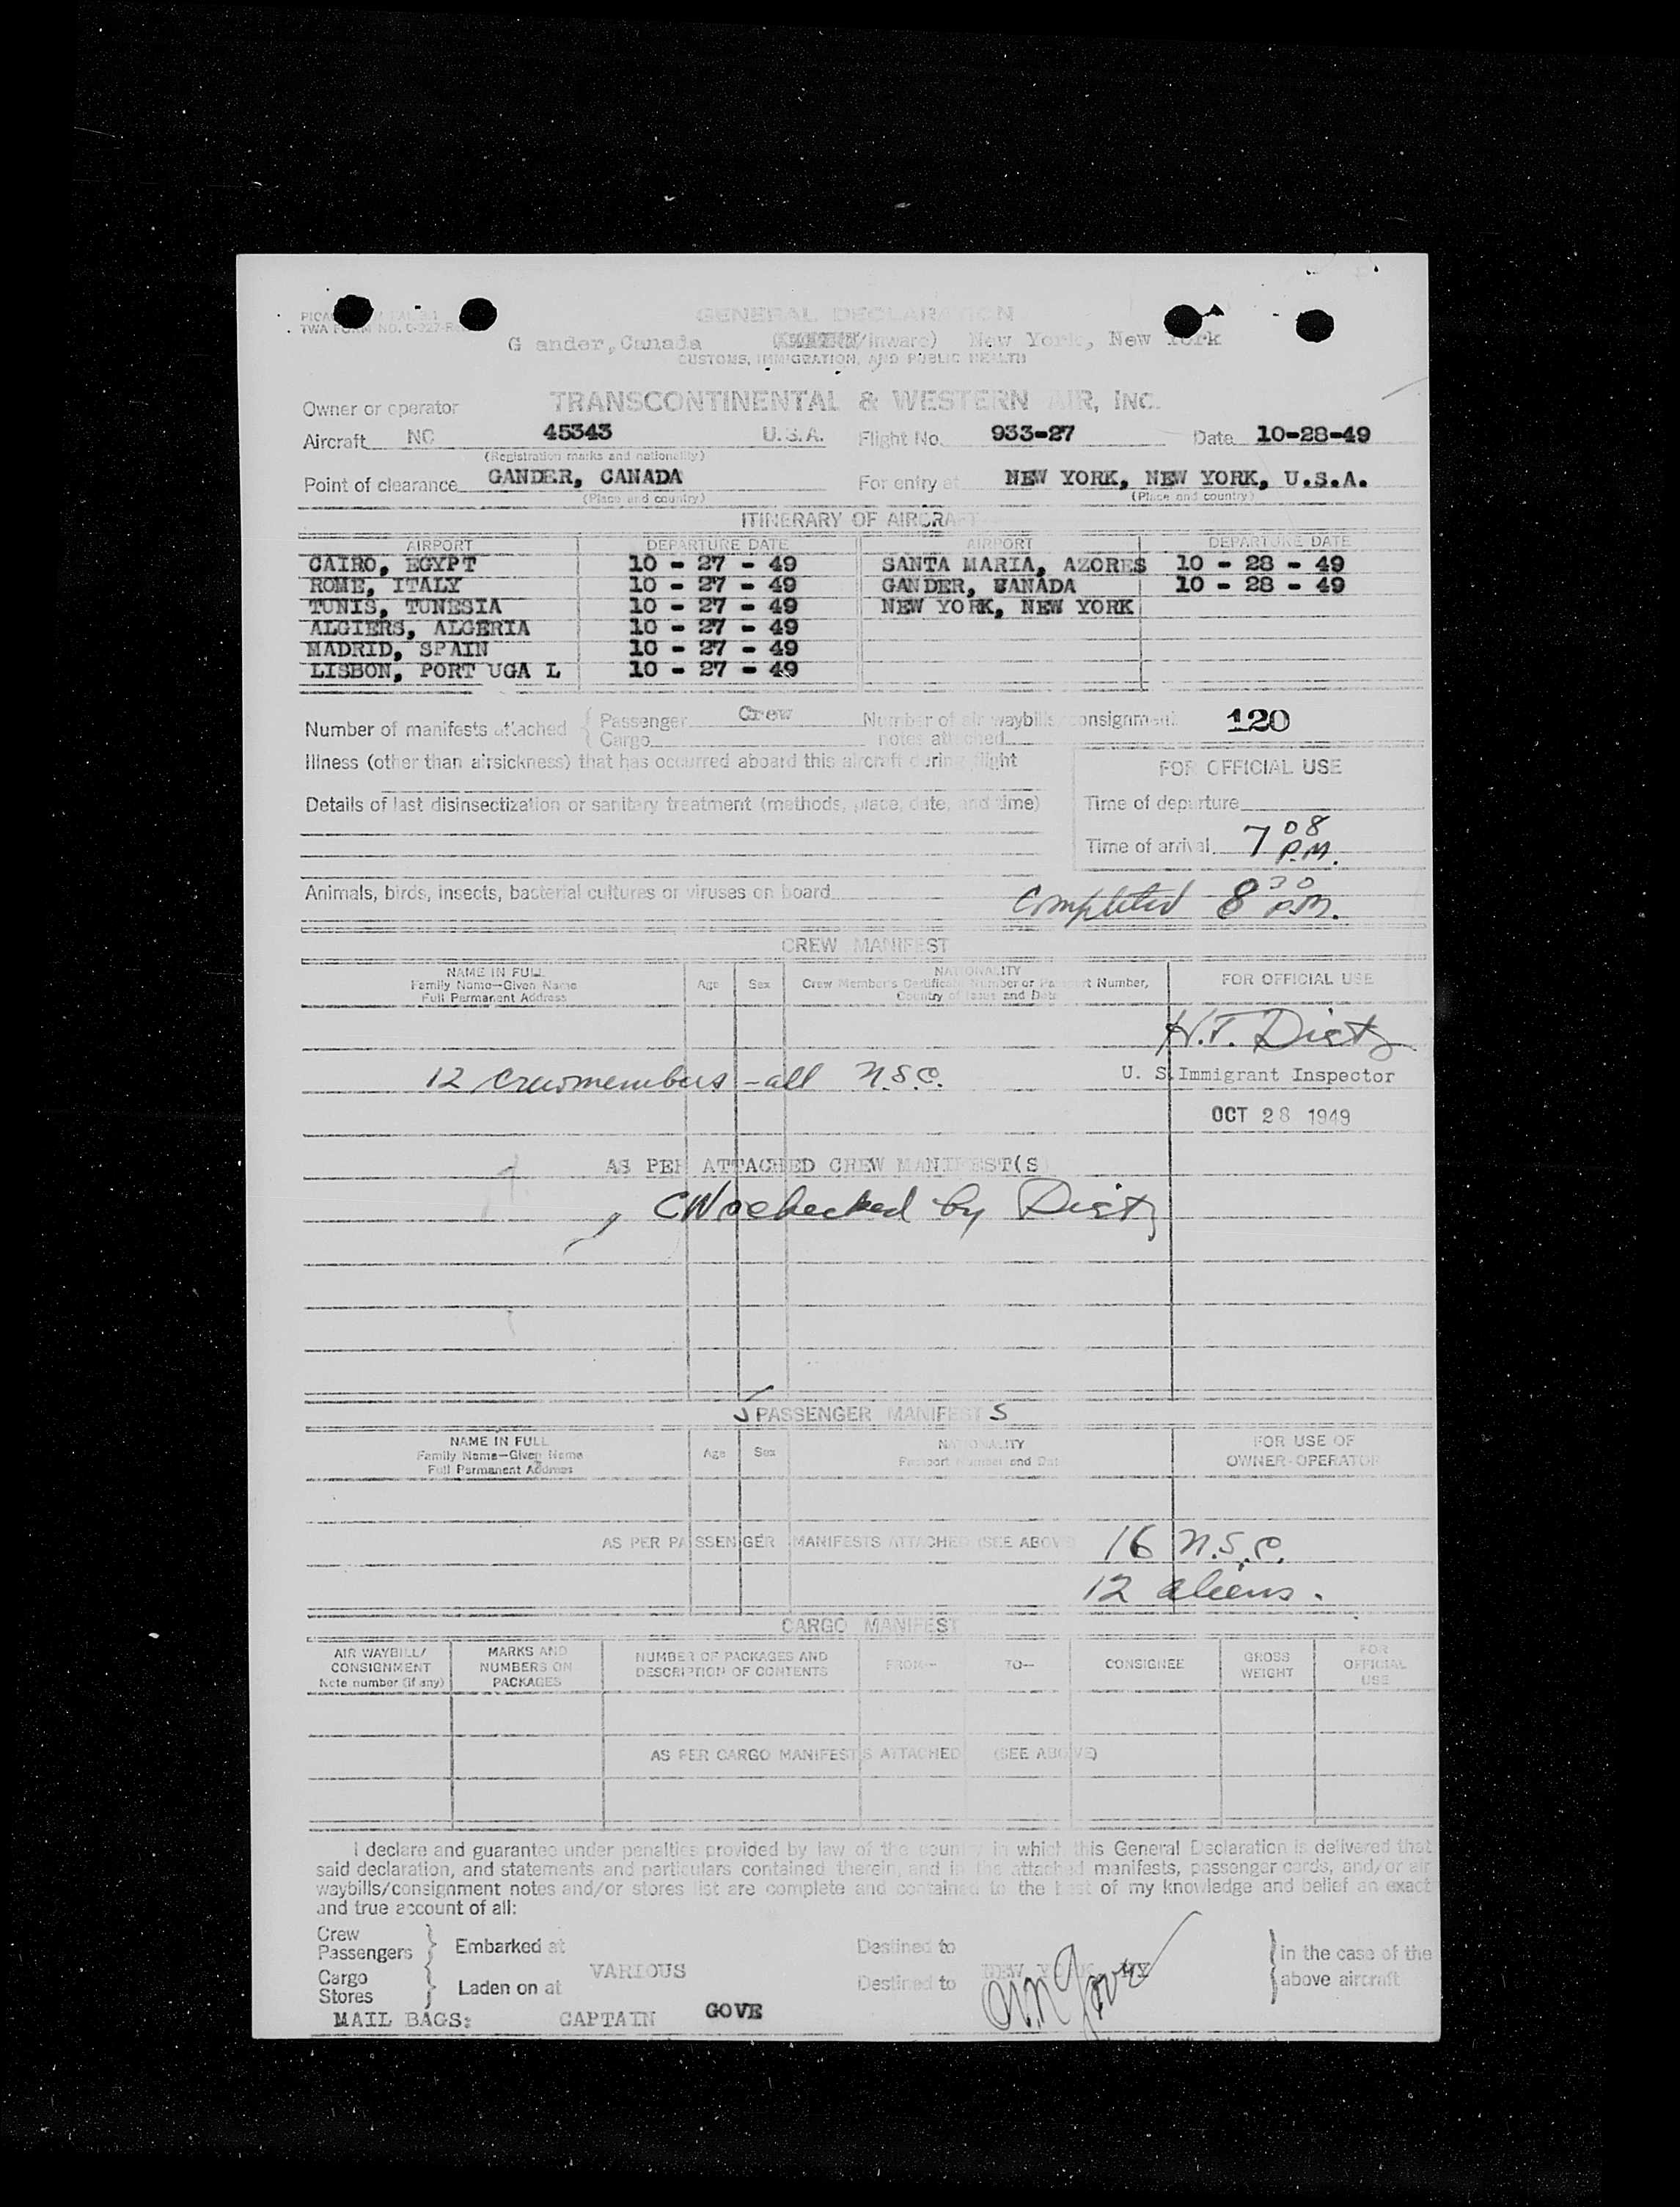 GENERAL DECLARATION
G ander, Canada /Inward) New York, New York
TWA FORM NO.
CUSTOMS, IMMIGRATION, AND PUBLIC HEALTH
Owner or operator TRANSCONTINENTAL & WESTERN AIR, INC.
Aircraft NC 45343 U.S.A. Flight No. 933-27 Date 10-28-49
(Registration marks and nationality)
Point of clearance GANDER, CANADA For entry at NEW YORK, NEW YORK, U.S.A.
(Place and country) (Place and country)
ITINERARY OF AIRCRAFT
AIRPORT DEPARTURE DATE AIRPORT DEPARTURE DATE
CAIRO, EGYPT 10 - 27 - 49 SANTA MARIA, AZORES 10 - 28 - 49
ROME, ITALY 10 - 27 - 49 GANDER, CANADA 10 - 28 - 49
TUNIS, TUNESIA 10 - 27 - 49 NEW YORK, NEW YORK
ALGIERS, ALGERIA 10 - 27 - 49
MADRID, SPAIN 10 - 27 - 49
LISBON, PORT UGA L 10 - 27 - 49
Number of manifests attached { Passenger Crew Number of air waybills/consignment 120
Cargo notes attached
Illness (other than airsickness) that has occurred aboard this aircraft during flight
FOR OFFICIAL USE
Details of last disinsectization or sanitary treatment (methods, place, date, and time)
Time of departure
Time of arrival 7 08 P.M.
Animals, birds, insects, bacterial cultures or viruses on board
Completed 8 30 P.M.
CREW MANIFEST
NAME IN FULL
Family Name—Given Name
Full Permanent Address
Age Sex
NATIONALITY
Crew Member's Certificate Number or Passport Number,
Country of Issue and Date
FOR OFFICIAL USE
H.T. Dietz
12 Crewmembers - all N.S.C.
U. S. Immigrant Inspector
OCT 28 1949
AS PER ATTACHED CREW MANIFEST(S)
checked by Dietz
PASSENGER MANIFEST S
NAME IN FULL
Family Name—Given Name
Full Permanent Address
Age Sex
NATIONALITY
Passport Number and Date
FOR USE OF
OWNER-OPERATOR
AS PER PASSENGER MANIFESTS ATTACHED (SEE ABOVE)
16 N.S.C.
12 aliens.
CARGO MANIFEST
AIR WAYBILL/
CONSIGNMENT
Note number (if any)
MARKS AND
NUMBERS ON
PACKAGES
NUMBER OF PACKAGES AND
DESCRIPTION OF CONTENTS
FROM— TO— CONSIGNEE
GROSS
WEIGHT
FOR
OFFICIAL
USE
AS PER CARGO MANIFESTS ATTACHED (SEE ABOVE)
I declare and guarantee under penalties provided by law of the country in which this General Declaration is delivered that
said declaration, and statements and particulars contained therein, and in the attached manifests, passenger cards, and/or air
waybills/consignment notes and/or stores list are complete and contained to the best of my knowledge and belief an exact
and true account of all:
Crew
Passengers } Embarked at Destined to
Cargo
Stores } Laden on at VARIOUS Destined to NEW YORK NY
} in the case of the
above aircraft
MAIL BAGS: CAPTAIN GOVE